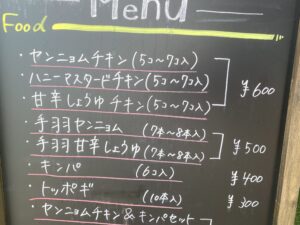 Menu
Food
・ヤンニョムチキン(5コ〜7コ入)
・ハニーマスタードチキン(5コ〜7コ入)
・甘辛しょうゆチキン(5コ〜7コ入)
¥600
・手羽ヤンニョム (7本〜8本入)
・手羽甘辛しょうゆ(7本〜8本入)
¥500
・キンパ (6コ入) ¥400
・トッポギ (10本入) ¥300
・ヤンニョムチキン&キンパセット